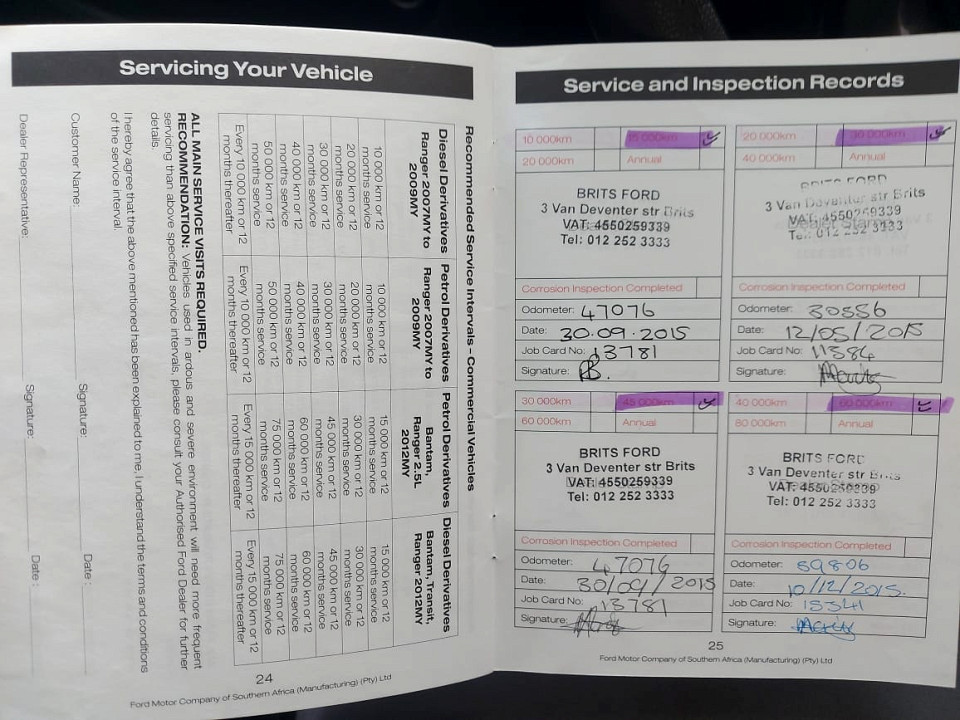 Servicing Your Vehicle
Recommended Service Intervals - Commercial Vehicles
Diesel Derivatives
Ranger 2007MY to
2009MY
10 000 km or 12
months service
20 000 km or 12
months service
30 000 km or 12
months service
40 000 km or 12
months service
50 000 km or 12
months service
Every 10 000 km or 12
months thereafter
Petrol Derivatives
Ranger 2007MY to
2009MY
10 000 km or 12
months service
20 000 km or 12
months service
30 000 km or 12
months service
40 000 km or 12
months service
50 000 km or 12
months service
Every 10 000 km or 12
months thereafter
Petrol Derivatives
Bantam,
Ranger 2.5L
2012MY
15 000 km or 12
months service
30 000 km or 12
months service
45 000 km or 12
months service
60 000 km or 12
months service
75 000 km or 12
months service
Every 15 000 km or 12
months thereafter
Diesel Derivatives
Bantam, Transit,
Ranger 2012MY
15 000 km or 12
months service
30 000 km or 12
months service
45 000 km or 12
months service
60 000 km or 12
months service
75 000 km or 12
months service
Every 15 000 km or 12
months thereafter
ALL MAIN SERVICE VISITS REQUIRED.
RECOMMENDATION: Vehicles used in ardous and severe environment will need more frequent
servicing than above specified service intervals, please consult your Authorised Ford Dealer for further
details.
I hereby agree that the above mentioned has been explained to me, I understand the terms and conditions
of the service interval
Customer Name: Signature: Date :
Dealer Representative: Signature: Date :
24
Ford Motor Company of Southern Africa (Manufacturing) (Pty) Ltd
Service and Inspection Records
10 000km 15 000km
20 000km Annual
BRITS FORD
3 Van Deventer str Brits
VAT: 4550259339
Tel: 012 252 3333
Corrosion Inspection Completed
Odometer: 47076
Date: 30.09.2015
Job Card No: 13781
Signature:
20 000km 30 000km
40 000km Annual
BRITS FORD
3 Van Deventer str Brits
VAT: 4550259339
Dealer Stamp
Tel: 012 252 3333
Corrosion Inspection Completed
Odometer: 30556
Date: 12/05/2015
Job Card No: 11584
Signature:
30 000km 45 000km
60 000km Annual
BRITS FORD
3 Van Deventer str Brits
VAT: 4550259339
Tel: 012 252 3333
Corrosion Inspection Completed
Odometer: 47076
Date: 30/09/2015
Job Card No: 13781
Signature:
40 000km 60 000km
80 000km Annual
BRITS FORD
3 Van Deventer str Brits
VAT: 4550259339
Tel: 012 252 3333
Corrosion Inspection Completed
Odometer: 59806
Date: 10/12/2015.
Job Card No: 15341
Signature:
25
Ford Motor Company of Southern Africa (Manufacturing) (Pty) Ltd